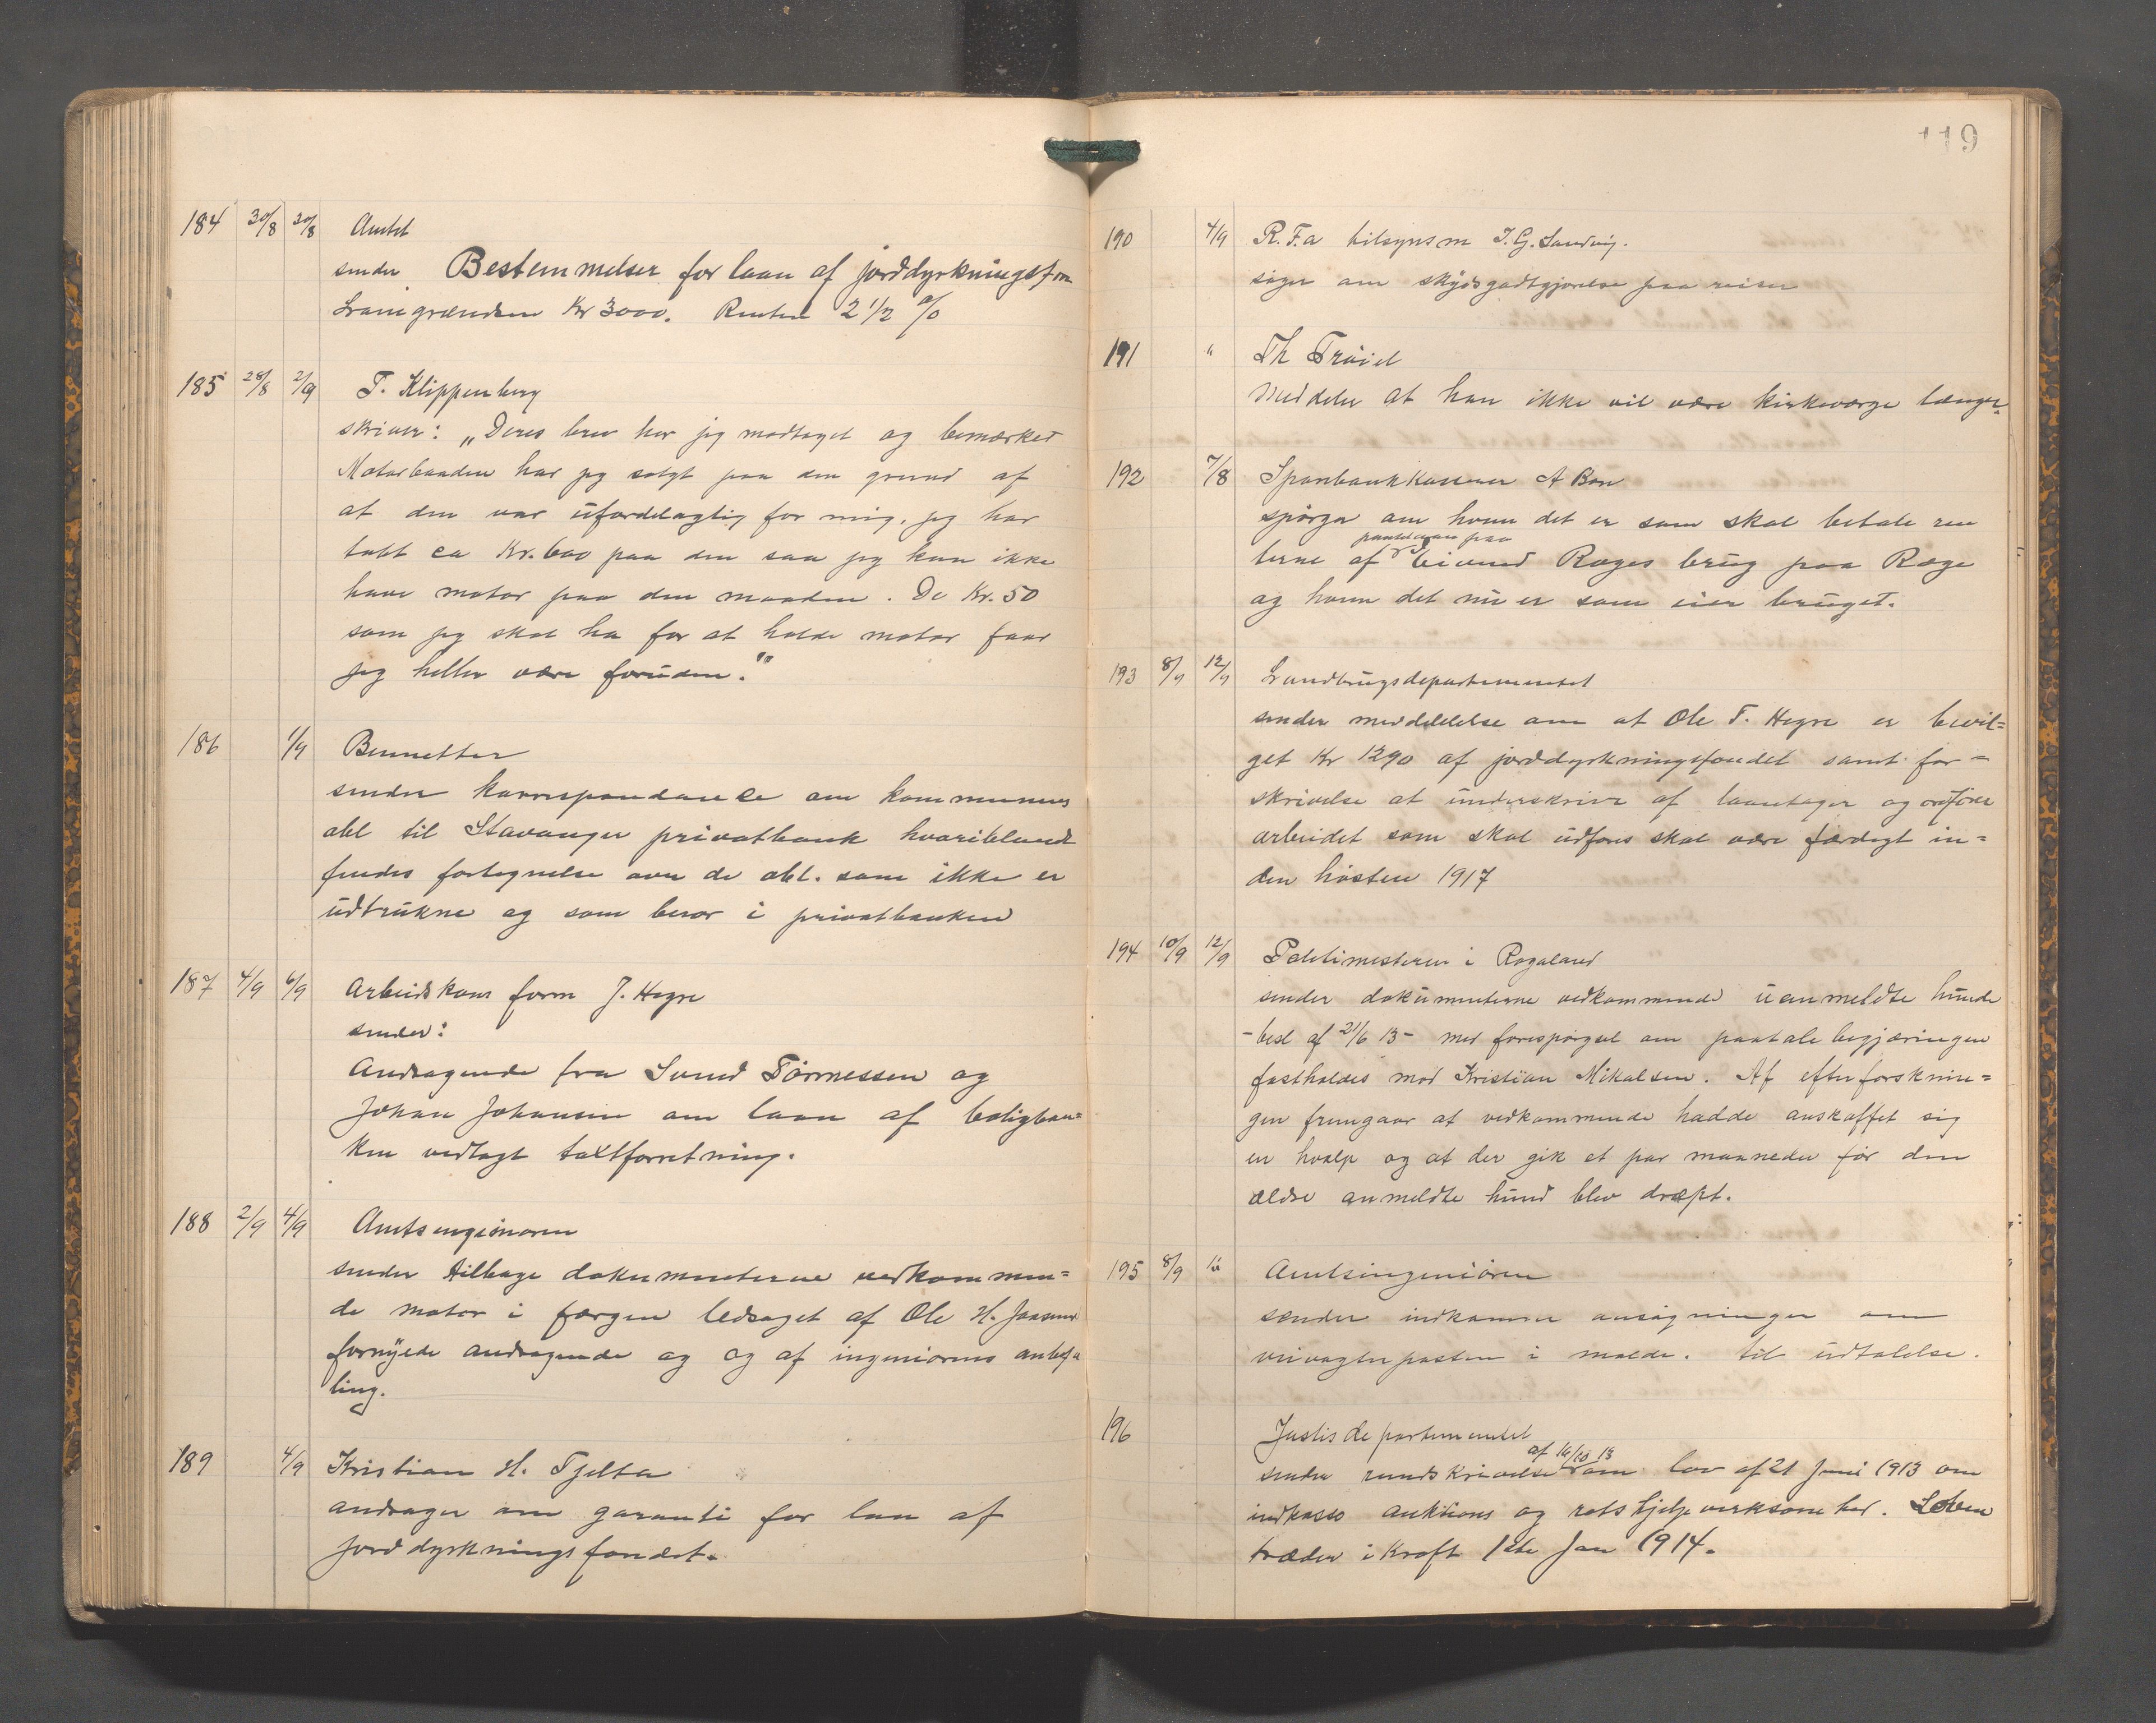 184 30/8 30/8 Amtet
sender Bestemmelser for laan af jorddyrkningsfon
Lånegrændsen Kr 3000. Renten 2 1/2 %
185 28/8 2/9 T. Klippenberg
skriver: „Deres brev har jeg modtaget og bemærket
Motorbaaden har jeg solgt paa den grund af
at den var ufordelagtig for mig, jeg har
tabt ca Kr. 600 paa den saa jeg kan ikke
have motor paa den maaden. De Kr. 50
som jeg skal ha for at holde motor faar
jeg heller være foruden."
186 1/9 Bennetter
sender korrespondance om kommunens
obl til Stavanger privatbank hvoriblandt
findes fortegnelse over de obl. som ikke er
udtrukne og som beror i privatbanken
187 4/9 6/9 Arbeidskom form J. Hegre
sender:
Andragende fra Svend Tönnessen og
Johan Johansen om laan af boligban=
ken vedlagt taxtforretning.
188 2/9 4/9 Amtsingeniören
sender tilbage dokumenterne vedkommen=
de motor i færgen ledsaget af Ole H. Jaasund
fornyede andragende og og af ingeniörens anbefa
ling.
189 4/9 Kristian H. Tjelta
andrager om garanti for lan af
Jorddyrkningsfondet.
119
190 4/9 R.F.a tilsynsm J. G. Sandvig.
söger om skydsgodtgjörelse paa reiser
191 " Th Tröiel
Meddeler at han ikke vil være kirkeværge længer.
192 7/8 Sparebankkasserer A Bore
spörger om hvem det er som skal betale ren
terne af panteloan paa Eivind Ræges brug paa Ræge
og hvem det nu er som eier bruget.
193 8/9 12/9 Landbrugsdepartementet
sender meddelelse om at Ole T. Hegre er bevil=
get Kr 1290 af jorddyrkningsfondet samt for=
skrivelse at underskrive af laantager og ordförer
arbeidet som skal udföres skal være færdigt in=
den hösten 1917
194 10/9 12/9 Politimesteren i Rogaland
sender dokumenterne vedkommende uanmeldte hunde
- besl af 21/6 13 - med forespörgsel om paatalebegjæringen
fastholdes mod Kristian Mikalsen. Af efterforsknin=
gen fremgaar at vedkommende hadde anskaffet sig
en hvalp og at der gik et par maaneder för den
ældre anmeldte hund blev dræpt.
195 8/9 " Amtsingeniören
sender indkomne ansögninger om
veivogterposten i Malde. til udtalelse.
196 Justisdepartementet
sender rundskrivelse af 16/10 13 om lov af 21 Juni 1913 om
indkasso auktions og retshjelpvirksomhed. Loven
træder i kraft 1ste Jan 1914.